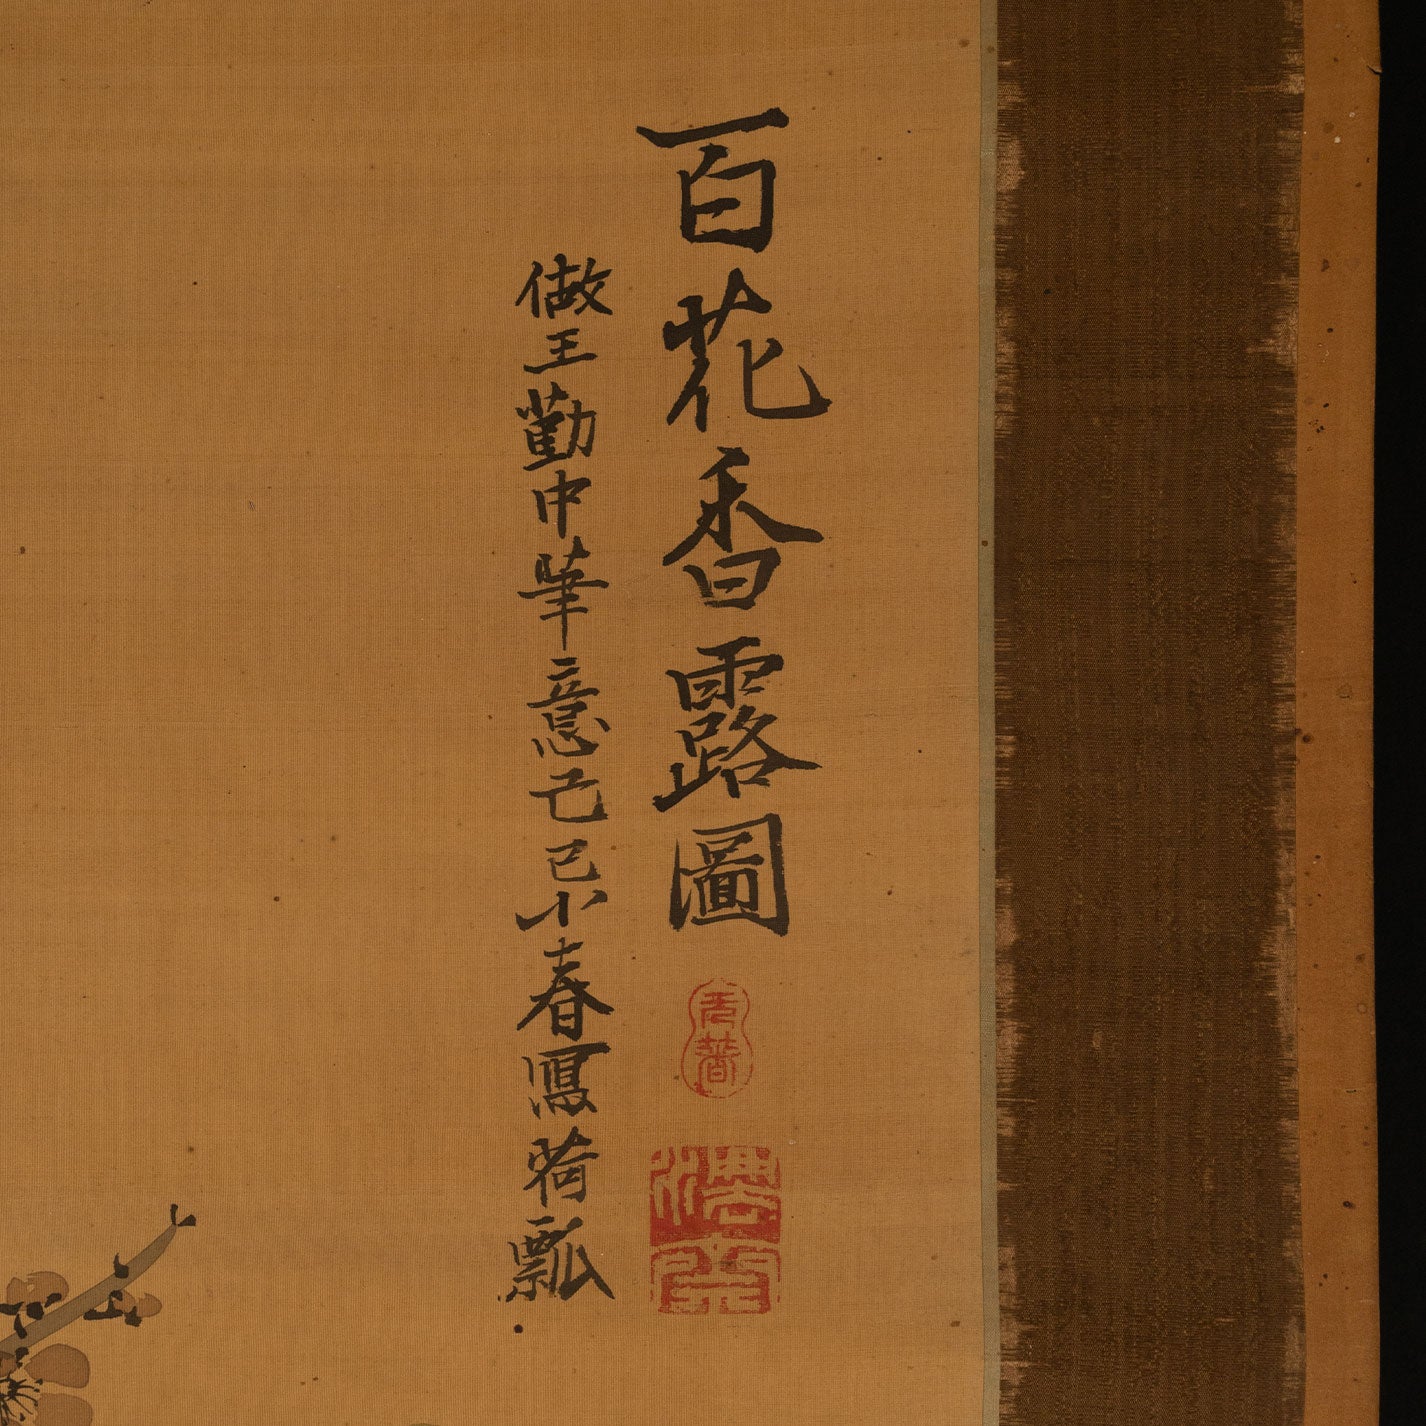 百花香露圖
倣王勤中筆意己巳小春寫荷瓢